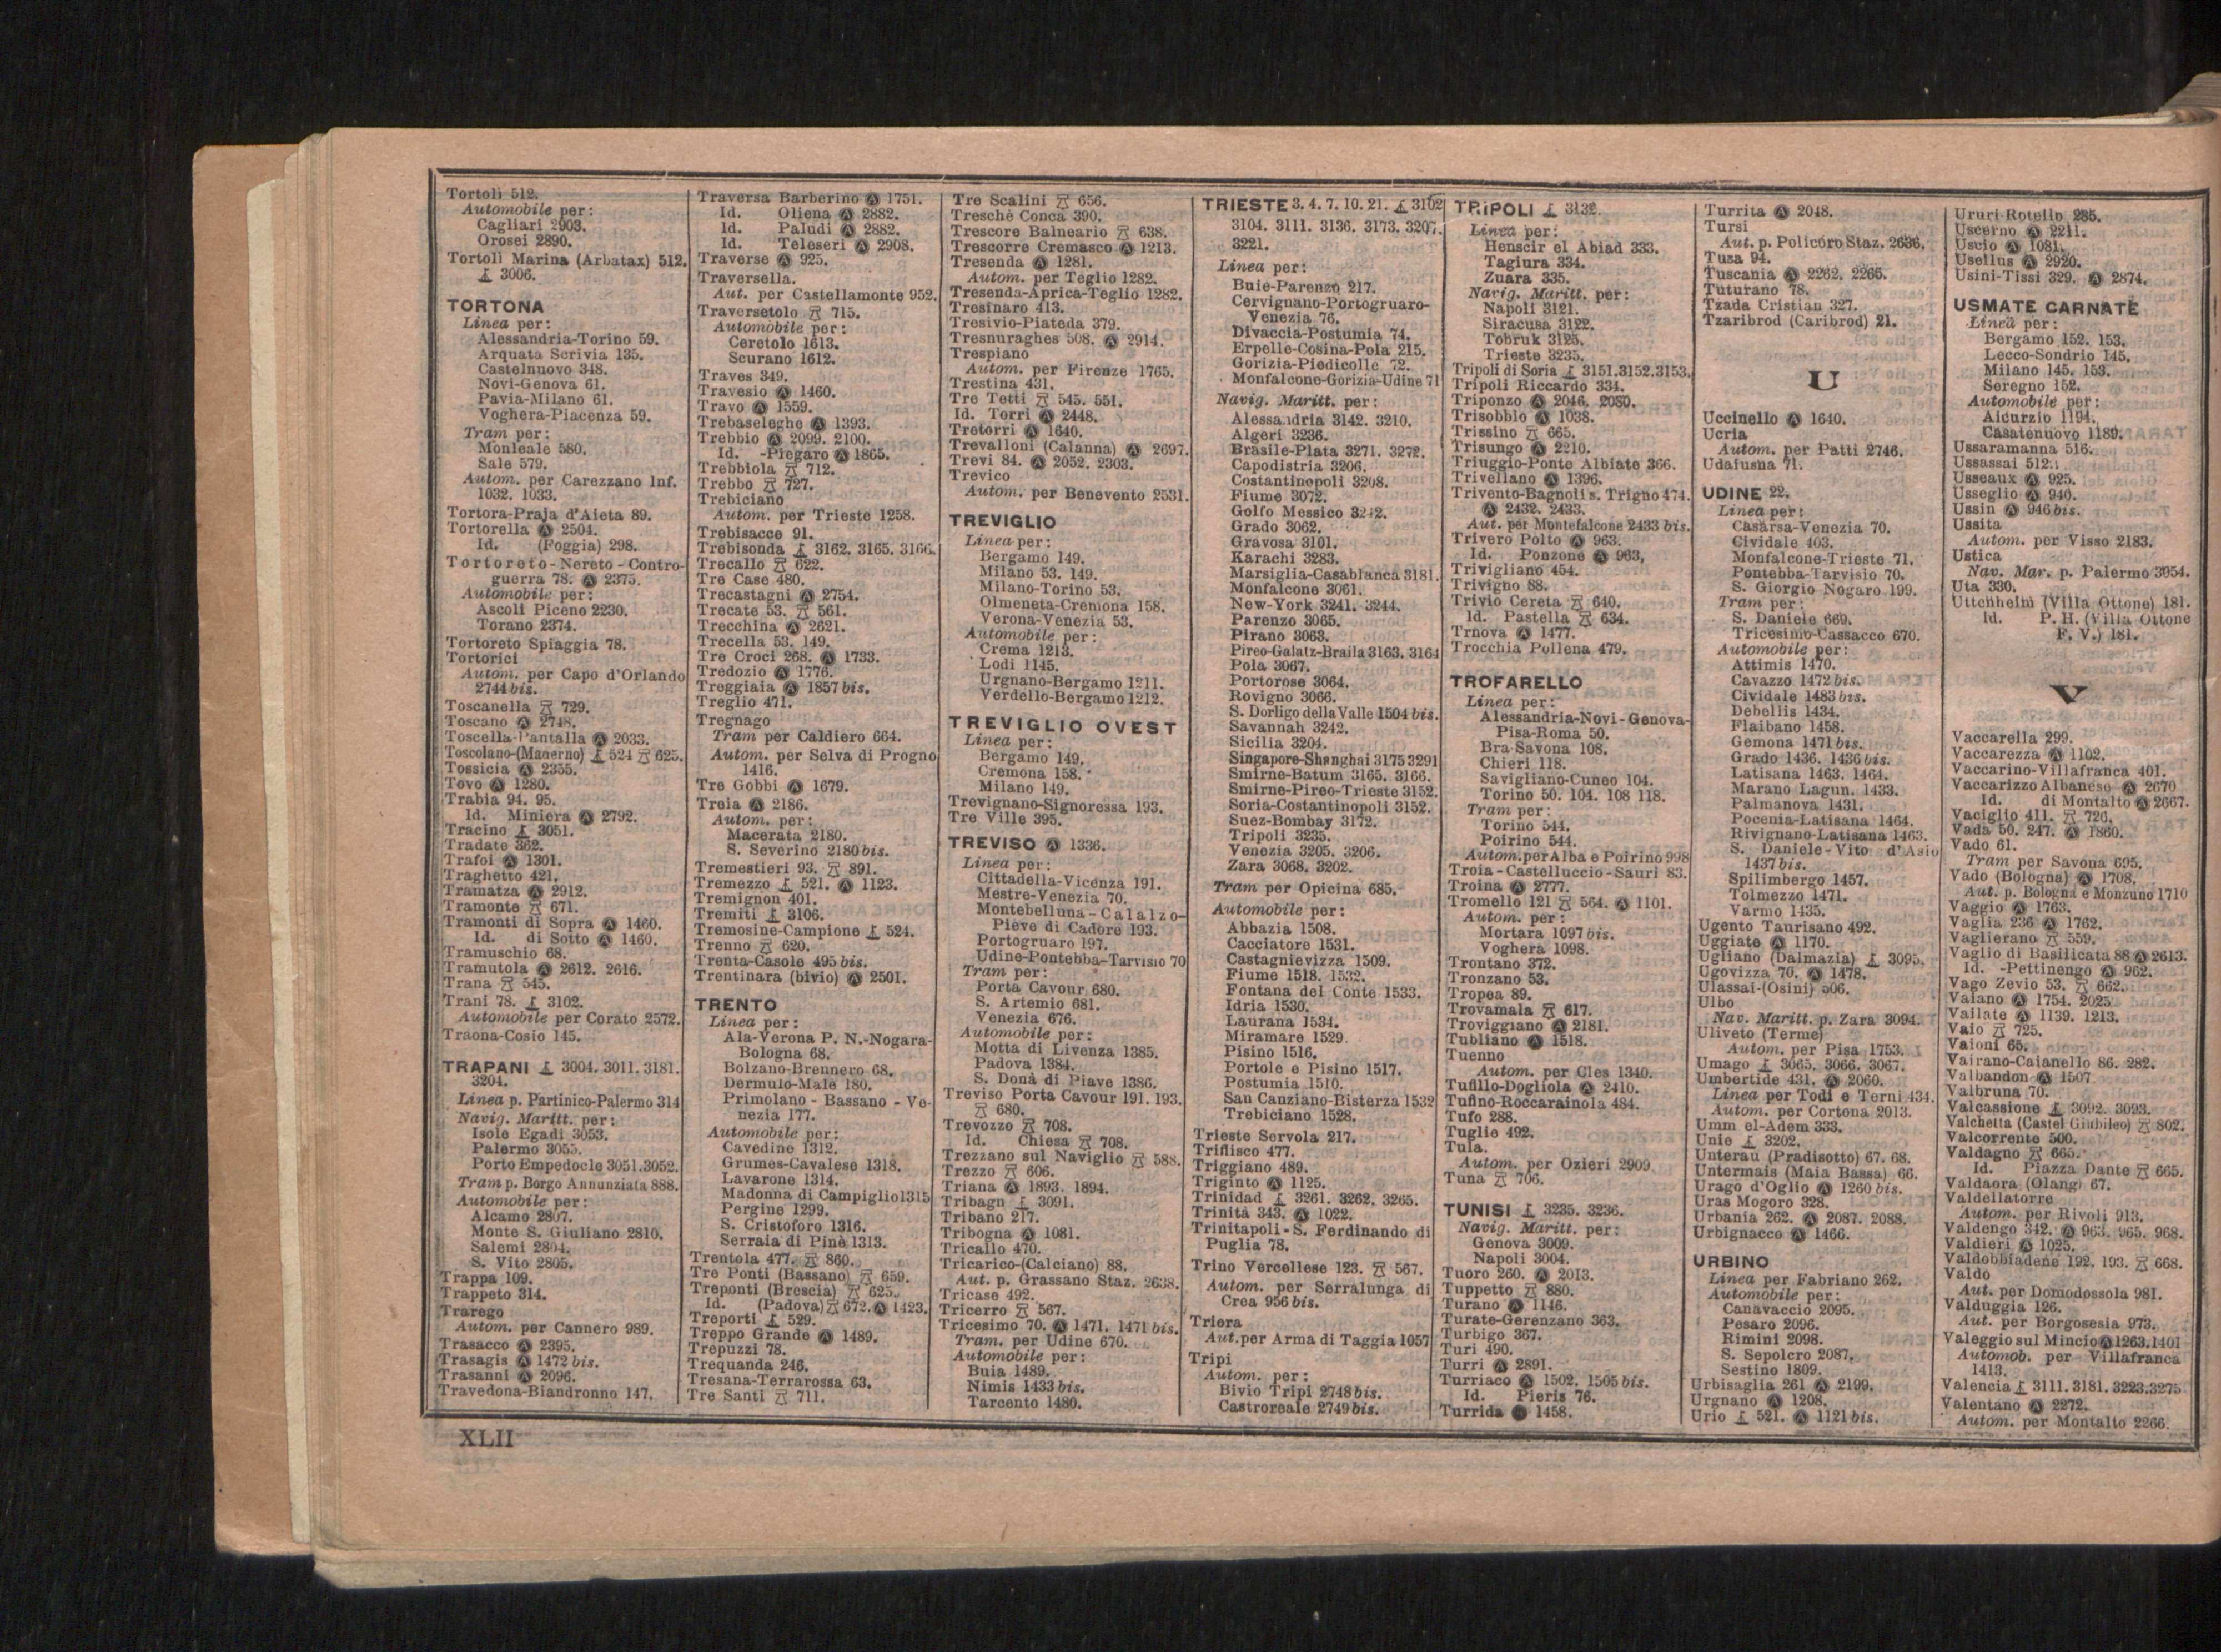 Tortolì 512.
Automobile per:
Cagliari 2903.
Orosei 2890.
Tortolì Marina (Arbatax) 512.
3006.
TORTONA
Linea per:
Alessandria-Torino 59.
Arquata Scrivia 135.
Castelnuovo 348.
Novi-Genova 61.
Pavia-Milano 61.
Voghera-Piacenza 59.
Tram per:
Monleale 580.
Sale 579.
Autom. per Carezzano Inf.
1032. 1033.
Tortora-Praja d'Aieta 89.
Tortorella Ⓐ 2504.
Id. (Foggia) 298.
Tortoreto-Nereto-Contro-
guerra 78. Ⓐ 2375.
Automobile per:
Ascoli Piceno 2230.
Torano 2374.
Tortoreto Spiaggia 78.
Tortorici
Autom. per Capo d'Orlando
2744 bis.
Toscanella 729.
Toscano Ⓐ 2748.
Toscella-Pantalla Ⓐ 2033.
Toscolano-(Maderno) 524 625.
Tossicia Ⓐ 2355.
Tovo Ⓐ 1280.
Trabia 94. 95.
Id. Miniera Ⓐ 2792.
Tracino 3051.
Tradate 362.
Trafoi Ⓐ 1301.
Traghetto 421.
Tramatza Ⓐ 2912.
Tramonte 671.
Tramonti di Sopra Ⓐ 1460.
Id. di Sotto Ⓐ 1460.
Tramuschio 68.
Tramutola Ⓐ 2612. 2616.
Trana 545.
Trani 78. 3102.
Automobile per Corato 2572.
Traona-Cosio 145.
TRAPANI 3004. 3011. 3181.
3204.
Linea p. Partinico-Palermo 314
Navig. Maritt. per:
Isole Egadi 3053.
Palermo 3055.
Porto Empedocle 3051.3052.
Tram p. Borgo Annunziata 888.
Automobile per:
Alcamo 2807.
Monte S. Giuliano 2810.
Salemi 2804.
S. Vito 2805.
Trappa 109.
Trappeto 314.
Trarego
Autom. per Cannero 989.
Trasacco Ⓐ 2395.
Trasagis Ⓐ 1472 bis.
Trasanni Ⓐ 2096.
Travedona-Biandronno 147.
Traversa Barberino Ⓐ 1751.
Id. Oliena Ⓐ 2882.
Id. Paludi Ⓐ 2882.
Id. Teleseri Ⓐ 2908.
Traverse Ⓐ 925.
Traversella.
Aut. per Castellamonte 952.
Traversetolo 715.
Automobile per:
Ceretolo 1613.
Scurano 1612.
Traves 349.
Travesio Ⓐ 1460.
Travo Ⓐ 1559.
Trebaseleghe Ⓐ 1393.
Trebbio Ⓐ 2099. 2100.
Id. -Piegaro Ⓐ 1865.
Trebbiola 712.
Trebbo 727.
Trebiciano
Autom. per Trieste 1258.
Trebisacce 91.
Trebisonda 3162. 3165. 3166.
Trecallo 622.
Tre Case 480.
Trecastagni Ⓐ 2754.
Trecate 53. 561.
Trecchina Ⓐ 2621.
Trecella 53. 149.
Tre Croci 268. Ⓐ 1733.
Tredozio Ⓐ 1776.
Treggiaia Ⓐ 1857 bis.
Treglio 471.
Tregnago
Tram per Caldiero 664.
Autom. per Selva di Progno
1416.
Tre Gobbi Ⓐ 1679.
Treia Ⓐ 2186.
Autom. per:
Macerata 2180.
S. Severino 2180 bis.
Tremestieri 93. 891.
Tremezzo 521. Ⓐ 1123.
Tremignon 401.
Tremiti 3106.
Tremosine-Campione 524.
Trenno 620.
Trenta-Casole 495 bis.
Trentinara (bivio) Ⓐ 2501.
TRENTO
Linea per:
Ala-Verona P. N.-Nogara-
Bologna 68.
Bolzano-Brennero 68.
Dermulo-Malè 180.
Primolano - Bassano - Ve-
nezia 177.
Automobile per:
Cavedine 1312.
Grumes-Cavalese 1318.
Lavarone 1314.
Madonna di Campiglio1315
Pergine 1299.
S. Cristoforo 1316.
Serraia di Pinè 1313.
Trentola 477. 860.
Tre Ponti (Bassano) 659.
Treponti (Brescia) 625.
Id. (Padova) 672. Ⓐ 1423.
Treporti 529.
Treppo Grande Ⓐ 1489.
Trepuzzi 78.
Trequanda 246.
Tresana-Terrarossa 63.
Tre Santi 711.
Tre Scalini 656.
Tresche Conca 390.
Trescore Balneario 638.
Trescorre Cremasco Ⓐ 1213.
Tresenda Ⓐ 1281.
Autom. per Teglio 1282.
Tresenda-Aprica-Teglio 1282.
Tresinaro 413.
Tresivio-Piateda 379.
Tresnuraghes 508. Ⓐ 2914.
Trespiano
Autom. per Firenze 1765.
Trestina 431.
Tre Tetti 545. 551.
Id. Torri Ⓐ 2448.
Tretorri Ⓐ 1640.
Trevalloni (Calanna) Ⓐ 2697.
Trevi 84. Ⓐ 2052. 2303.
Trevico
Autom. per Benevento 2531.
TREVIGLIO
Linea per:
Bergamo 149.
Milano 53. 149.
Milano-Torino 53.
Olmeneta-Cremona 158.
Verona-Venezia 53.
Automobile per:
Crema 1213.
Lodi 1145.
Urgnano-Bergamo 1211.
Verdello-Bergamo 1212.
TREVIGLIO OVEST
Linea per:
Bergamo 149.
Cremona 158.
Milano 149.
Trevignano-Signoressa 193.
Tre Ville 395.
TREVISO Ⓐ 1336.
Linea per:
Cittadella-Vicenza 191.
Mestre-Venezia 70.
Montebelluna-Calalzo-
Pieve di Cadore 193.
Portogruaro 197.
Udine-Pontebba-Tarvisio 70
Tram per:
Porta Cavour 680.
S. Artemio 681.
Venezia 676.
Automobile per:
Motta di Livenza 1385.
Padova 1384.
S. Donà di Piave 1386.
Treviso Porta Cavour 191. 193.
680.
Trevozzo 708.
Id. Chiesa 708.
Trezzano sul Naviglio 588.
Trezzo 606.
Triana Ⓐ 1893. 1894.
Tribagn 3091.
Tribano 217.
Tribogna Ⓐ 1081.
Tricallo 470.
Tricarico-(Calciano) 88.
Aut. p. Grassano Staz. 2638.
Tricase 492.
Tricerro 567.
Tricesimo 70. Ⓐ 1471. 1471 bis.
Tram. per Udine 670.
Automobile per:
Buia 1489.
Nimis 1433 bis.
Tarcento 1480.
TRIESTE 3. 4. 7. 10. 21. 3102
3104. 3111. 3136. 3173. 3207.
3221.
Linea per:
Buie-Parenzo 217.
Cervignano-Portogruaro-
Venezia 76.
Divaccia-Postumia 74.
Erpelle-Cosina-Pola 215.
Gorizia-Piedicolle 72.
Monfalcone-Gorizia-Udine 71
Navig. Maritt. per:
Alessandria 3142. 3210.
Algeri 3236.
Brasile-Plata 3271. 3272.
Capodistria 3206.
Costantinopoli 3208.
Fiume 3072.
Golfo Messico 3242.
Grado 3062.
Gravosa 3101.
Karachi 3283.
Marsiglia-Casablanca 3181.
Monfalcone 3061.
New-York 3241. 3244.
Parenzo 3065.
Pirano 3063.
Pireo-Galatz-Braila 3163. 3164
Pola 3067.
Portorose 3064.
Rovigno 3066.
S. Dorligo della Valle 1504 bis.
Savannah 3242.
Sicilia 3204.
Singapore-Shanghai 3175 3291
Smirne-Batum 3165. 3166.
Smirne-Pireo-Trieste 3152.
Soria-Costantinopoli 3152.
Suez-Bombay 3172.
Tripoli 3235.
Venezia 3205. 3206.
Zara 3068. 3202.
Tram per Opicina 685.
Automobile per:
Abbazia 1508.
Cacciatore 1531.
Castagnievizza 1509.
Fiume 1518. 1532.
Fontana del Conte 1533.
Idria 1530.
Laurana 1534.
Miramare 1529.
Pisino 1516.
Portole e Pisino 1517.
Postumia 1510.
San Canziano-Bisterza 1532
Trebiciano 1528.
Trieste Servola 217.
Triflisco 477.
Triggiano 489.
Triginto Ⓐ 1125.
Trinidad 3261. 3262. 3265.
Trinità 343. Ⓐ 1022.
Trinitapoli-S. Ferdinando di
Puglia 78.
Trino Vercellese 123. 567.
Autom. per Serralunga di
Crea 956 bis.
Triora
Aut. per Arma di Taggia 1057
Tripi
Autom. per:
Bivio Tripi 2748 bis.
Castroreale 2749 bis.
TRIPOLI 3132.
Linea per:
Henscir el Abiad 333.
Tagiura 334.
Zuara 335.
Navig. Maritt. per:
Napoli 3121.
Siracusa 3122.
Tobruk 3125.
Trieste 3235.
Tripoli di Soria 3151.3152.3153.
Tripoli Riccardo 334.
Triponzo Ⓐ 2046. 2080.
Trisobbio Ⓐ 1038.
Trissino 665.
Trisungo Ⓐ 2210.
Triuggio-Ponte Albiate 366.
Trivellano Ⓐ 1396.
Trivento-Bagnoli s. Trigno 474.
Ⓐ 2432. 2433.
Aut. per Montefalcone 2433 bis.
Trivero Polto Ⓐ 963.
Id. Ponzone Ⓐ 963,
Trivigliano 454.
Trivigno 88.
Trivio Cereta 640.
Id. Pastella 634.
Trnova Ⓐ 1477.
Trocchia Pollena 479.
TROFARELLO
Linea per:
Alessandria-Novi-Genova-
Pisa-Roma 50.
Bra-Savona 108.
Chieri 118.
Savigliano-Cuneo 104.
Torino 50. 104. 108 118.
Tram per:
Torino 544.
Poirino 544.
Autom. per Alba e Poirino 998
Troia-Castelluccio-Sauri 83.
Troina Ⓐ 2777.
Tromello 121 564. Ⓐ 1101.
Autom. per:
Mortara 1097 bis.
Voghera 1098.
Trontano 372.
Tronzano 53.
Tropea 89.
Trovamala 617.
Troviggiano Ⓐ 2181.
Tubliano Ⓐ 1518.
Tuenno
Autom. per Cles 1340.
Tufillo-Dogliola Ⓐ 2410.
Tufino-Roccarainola 484.
Tufo 288.
Tuglie 492.
Tula.
Autom. per Ozieri 2909
Tuna 706.
TUNISI 3235. 3236.
Navig. Maritt. per:
Genova 3009.
Napoli 3004.
Tuoro 260. Ⓐ 2013.
Tuppetto 880.
Turano Ⓐ 1146.
Turate-Gerenzano 363.
Turbigo 367.
Turi 490.
Turri Ⓐ 2891.
Turriaco Ⓐ 1502. 1505 bis.
Id. Pieris 76.
Turrida Ⓐ 1458.
Turrita Ⓐ 2048.
Tursi
Aut. p. Policoro Staz. 2636.
Tusa 94.
Tuscania Ⓐ 2262. 2265.
Tuturano 78.
Tzada Cristian 327.
Tzaribrod (Caribrod) 21.
U
Uccinello Ⓐ 1640.
Ucria
Autom. per Patti 2746.
Udaiusna 71.
UDINE 22.
Linea per:
Casarsa-Venezia 70.
Cividale 403.
Monfalcone-Trieste 71.
Pontebba-Tarvisio 70.
S. Giorgio Nogaro 199.
Tram per:
S. Daniele 669.
Tricesimo-Cassacco 670.
Automobile per:
Attimis 1470.
Cavazzo 1472 bis.
Cividale 1483 bis.
Debellis 1434.
Flaibano 1458.
Gemona 1471 bis.
Grado 1436. 1436 bis.
Latisana 1463. 1464.
Marano Lagun. 1433.
Palmanova 1431.
Pocenia-Latisana 1464.
Rivignano-Latisana 1463.
S. Daniele-Vito d'Asio
1437 bis.
Spilimbergo 1457.
Tolmezzo 1471.
Varmo 1435.
Ugento Taurisano 492.
Uggiate Ⓐ 1170.
Ugliano (Dalmazia) 3095.
Ugovizza 70. Ⓐ 1478.
Ulassai-(Osini) 506.
Ulbo
Nav. Maritt. p. Zara 3094.
Uliveto (Terme)
Autom. per Pisa 1753.
Umago 3065. 3066. 3067.
Umbertide 431. Ⓐ 2060.
Linea per Todi e Terni 434.
Autom. per Cortona 2013.
Umm el-Adem 333.
Unie 3202.
Unterau (Pradisotto) 67. 68.
Untermais (Maia Bassa) 66.
Urago d'Oglio Ⓐ 1260 bis.
Uras Mogoro 328.
Urbania 262. Ⓐ 2087. 2088.
Urbignacco Ⓐ 1466.
URBINO
Linea per Fabriano 262.
Automobile per:
Canavaccio 2095.
Pesaro 2096.
Rimini 2098.
S. Sepolcro 2087.
Sestino 1809.
Urbisaglia 261 Ⓐ 2199.
Urgnano Ⓐ 1208.
Urio 521. Ⓐ 1121 bis.
Ururi-Rotello 285.
Uscerno Ⓐ 2211.
Uscio Ⓐ 1081.
Usellus Ⓐ 2920.
Usini-Tissi 329. Ⓐ 2874.
USMATE CARNATE
Linea per:
Bergamo 152. 153.
Lecco-Sondrio 145.
Milano 145. 153.
Seregno 152.
Automobile per:
Aicurzio 1194.
Casatenuovo 1189.
Ussaramanna 516.
Ussassai 512.
Usseaux Ⓐ 925.
Usseglio Ⓐ 940.
Ussin Ⓐ 946 bis.
Ussita
Autom. per Visso 2183.
Ustica
Nav. Mar. p. Palermo 3054.
Uta 330.
Uttenheim (Villa Ottone) 181.
Id. P. H. (Villa Ottone
F. V.) 181.
V
Vaccarella 299.
Vaccarezza Ⓐ 1102.
Vaccarino-Villafranca 401.
Vaccarizzo Albanese Ⓐ 2670
Id. di Montalto Ⓐ 2667.
Vaciglio 411. 726.
Vada 50. 247. Ⓐ 1860.
Vado 61.
Tram per Savona 695.
Vado (Bologna) Ⓐ 1708.
Aut. p. Bologna e Monzuno 1710
Vaggio Ⓐ 1763.
Vaglia 236 Ⓐ 1762.
Vaglierano 559.
Vaglio di Basilicata 88 Ⓐ 2613.
Id. -Pettinengo Ⓐ 962.
Vago Zevio 53. 662.
Vaiano Ⓐ 1754. 2025
Vailate Ⓐ 1139. 1213.
Vaio 725.
Vaioni 65.
Vairano-Caianello 86. 282.
Valbandon Ⓐ 1507
Valbruna 70.
Valcassione 3092. 3093.
Valchetta (Castel Giubileo) 802.
Valcorrente 500.
Valdagno 665.
Id. Piazza Dante 665.
Valdaora (Olang) 67.
Valdellatorre
Autom. per Rivoli 913.
Valdengo 342. Ⓐ 963. 965. 968.
Valdieri Ⓐ 1025.
Valdobbiadene 192. 193. 668.
Valdo
Aut. per Domodossola 981.
Valduggia 126.
Aut. per Borgosesia 973.
Valeggio sul Mincio Ⓐ 1263.1401
Automob. per Villafranca
1413.
Valencia 3111. 3181. 3223.3275
Valentano Ⓐ 2272.
Autom. per Montalto 2266.
XLII